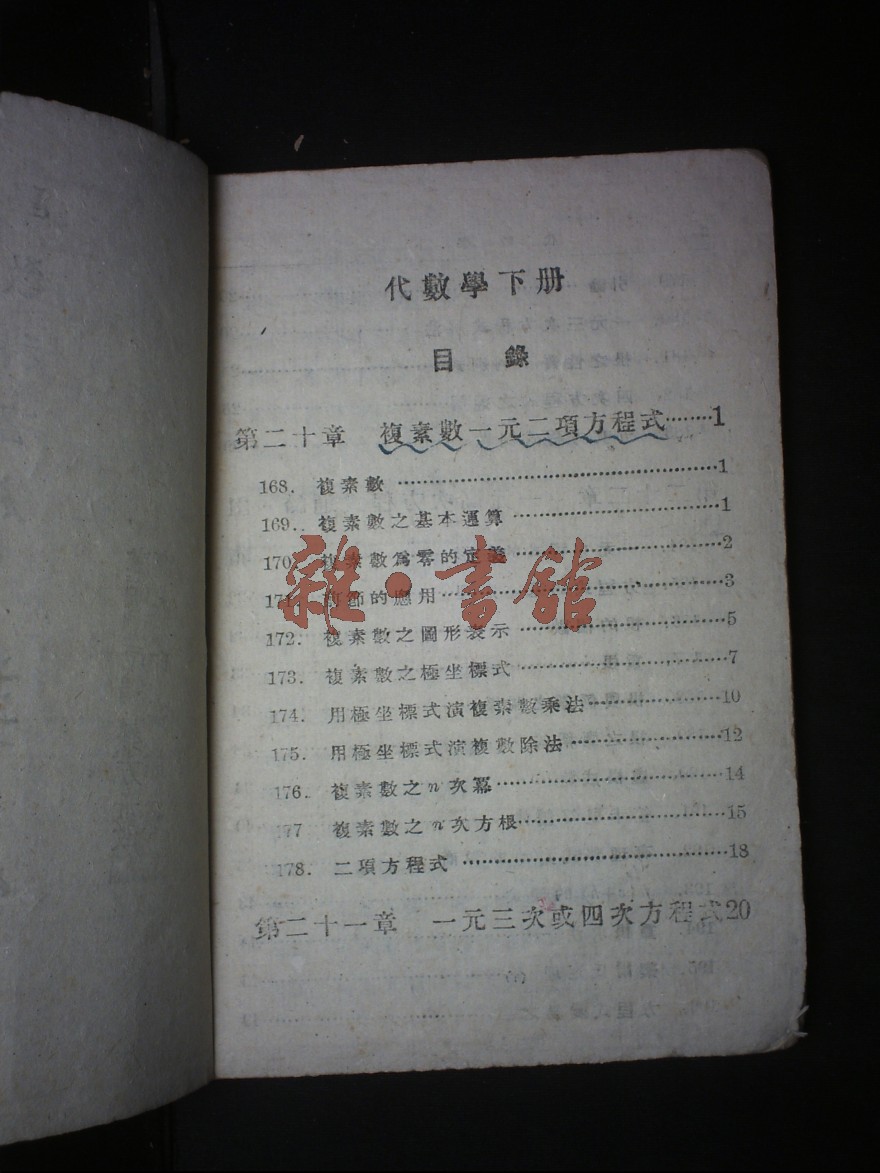 代數學下册
目 錄
第二十章 複素數一元二項方程式········1
168. 複素數·······························1
169. 複素數之基本運算··················1
170. 複素數爲零的定義··················2
171. 前節的應用··························3
172. 複素數之圖形表示··················5
173. 複素數之極坐標式··················7
174. 用極坐標式演複素數乘法············10
175. 用極坐標式演複數除法············12
176. 複素數之n次冪·····················14
177 複素數之n次方根·····················15
178. 二項方程式···························18
第二十一章 一元三次或四次方程式20
雜·書館